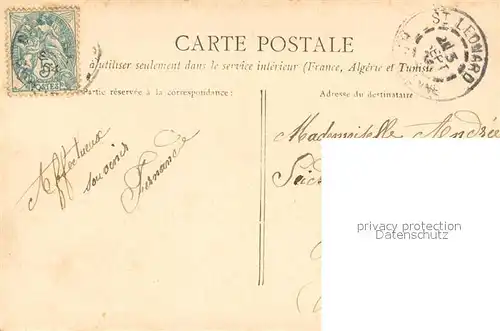 CARTE POSTALE
à utiliser seulement dans le service intérieur (France, Algérie et Tunisie
Partie réservée à la correspondance:
Adresse du destinataire
ST LEONARD
Affectueux
souvenir
Fernande
Mademoiselle Andrée
privacy protection
Datenschutz
POSTES